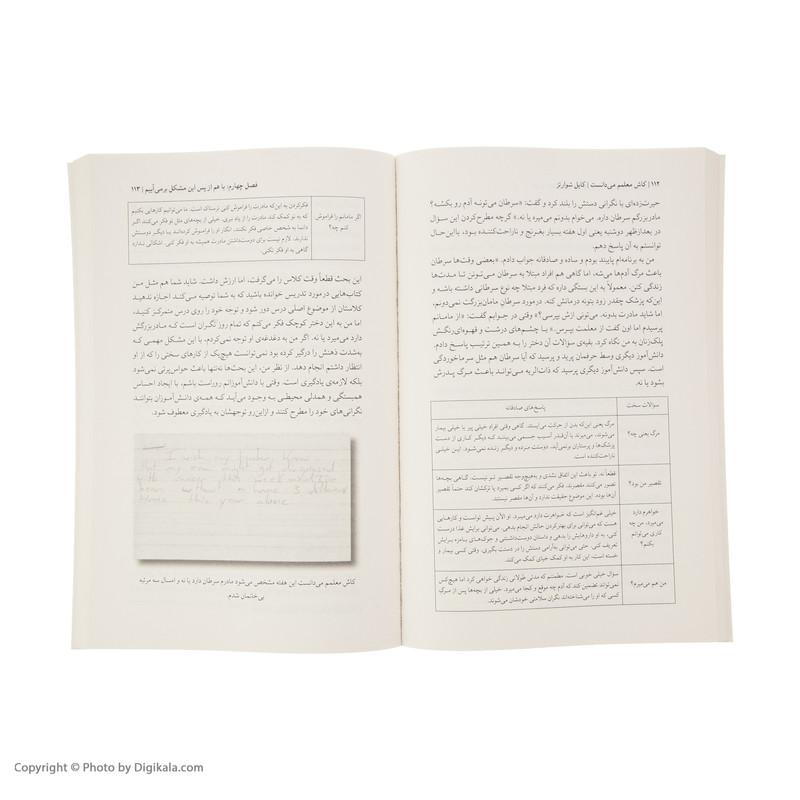 ۱۱۲ | کاش معلمم می‌دانست | کایل شوارتز
حیرت‌زده‌ای با نگرانی دستش را بلند کرد و گفت: «سرطان می‌تونه آدم رو بکشه؟
مادربزرگم سرطان داره. می‌خوام بدونم می‌میره یا نه.» گرچه مطرح‌کردن این سؤال
در بعدازظهر دوشنبه یعنی اول هفته بسیار بغرنج و ناراحت‌کننده بود، بااین‌حال
توانستم به آن پاسخ دهم.
من به برنامه‌ام پایبند بودم و ساده و صادقانه جواب دادم. «بعضی وقت‌ها سرطان
باعث مرگ آدم‌ها می‌شه، اما گاهی هم افراد مبتلا به سرطان می‌تونن تا مدت‌ها
زندگی کنن. معمولاً به این بستگی داره که فرد مبتلا چه نوع سرطانی داشته باشه و
این‌که پزشک چقدر زود بتونه درمانش کنه. در مورد سرطان مامان‌بزرگت نمی‌دونم،
اما شاید مادرت بدونه. می‌تونی ازش بپرسی؟» وقتی در جوابم گفت: «از مامانم
پرسیدم اما اون گفت از معلمت بپرس.» با چشم‌های درشت و قهوه‌ای‌رنگش
پلک‌زنان به من نگاه کرد. بقیه‌ی سؤالات آن دختر را به همین ترتیب پاسخ دادم.
دانش‌آموز دیگری وسط حرفمان پرید و پرسید که آیا سرطان هم مثل سرماخوردگی
است. سپس دانش‌آموز دیگری پرسید که ذات‌الریه می‌توانـد باعث مـرگ پـدرش
بشود یا نه.
سؤالات سخت
پاسخ‌های صادقانه
مرگ یعنی چه؟
مرگ یعنی این‌که بدن از حرکت می‌ایستد. گاهی وقتی افراد خیلی پیر یا خیلی بیمار
می‌شوند، می‌میرند یا آن‌قدر آسیب جسمی می‌بینند کـه دیگـر کـاری از دست
پزشک‌ها و پرستاران برنمی‌آید. وقتی مردند، دیگر زنـده نمی‌شـود. ایـن خیلـی
ناراحت‌کننده است.
تقصیر من بود؟
قطعاً نه. تو باعث این اتفاق نشدی و به‌هیچ‌وجه تقصیر تـو نیـست. گـاهی بچـه‌ها
تصور می‌کنند مقصرند. فکر می‌کنند که اگر کسی بمیرد یا ترکشان کند حتماً تقصیر
آن‌ها بوده. این موضوع حقیقت ندارد و آن‌ها مقصر نیستند.
خواهرم دارد
می‌میرد. من چه
کاری می‌توانم
بکنم؟
خیلی غم‌انگیز است که خـواهرت دارد می‌میـرد. او الآن پیـش توسـت و کارهـایی
هست که می‌توانی برای بهترکردن حالش انجام بدهی. می‌توانی برایش غذا درست
کنی، به او داروهایش را بدهی و داستان دوست‌داشتنی و جوک‌های بـامزه بـرایش
تعریف کنی. حتی می‌توانی به‌آرامی دستش را در دستت بگیری. وقتی کسی بیمار و
خسته است، این کار به او کمک خیلی کمک می‌کند.
من هم می‌میرم؟
سؤال خیلی خوبی است. مطمئنم که مدتی طولانی زندگی خواهی کرد اما هیچ‌کس
نمی‌تواند تضمین کند که آدم چه موقع و کجا می‌میرد. خیلی از بچه‌ها پس از مـرگ
کسی که او را می‌شناخته‌اند نگران سلامتی خودشان می‌شوند.
فصل چهارم: با هم از پس این مشکل برمی‌آییم | ۱۱۳
اگر مامانم را فراموش
کنم چه؟
فکرکردن به این‌که مادرت را فراموش کنی ترسناک است. ما می‌توانیم کارهایی بکنیم
که به تو کمک کند مادرت را از یاد نبری. خیلی از بچه‌های مثل تو فکر می‌کنند اگر
دائماً به شخص خاصی فکر نکنند، انگار او را فراموش کرده‌اند یـا دیگـر دوستـش
ندارند. لازم نیست برای دوست‌داشتن مادرت همیشه به او فکر کنی. اشکالی نـدارد
گاهی به او فکر نکنی.
این بحث قطعاً وقت کلاس را می‌گرفت، اما ارزش داشت. شاید شما هم مثل مـن
کتاب‌هایی درمورد تدریس خوانده باشید که به شما توصیه می‌کنـد اجـازه ندهیـد
کلاستان از موضوع اصلی درس دور شود و توجه خود را روی درس متمرکز کنیـد،
اما من به این دختر کوچک فکر می‌کنم که تمام روز نگـران اسـت کـه مـادربزرگش
دارد می‌میرد یا نه. اگر من به دغدغه‌ی او توجه نمی‌کردم، با این مشکل مهمـی کـه
به‌شدت ذهنش را درگیر کرده بود نمی‌توانست هیچ‌یک از کارهای سختی را که از او
انتظار داشتم انجام دهد. از نظر من، این بحث‌ها نه‌تنها باعث حواس‌پرتی نمی‌شود
بلکه لازمه‌ی یادگیری است. وقتی با دانش‌آموزانم روراست باشم، با ایجـاد احسـاس
همبستگی و همدلی محیطـی بـه وجـود می‌آیـد کـه همـه‌ی دانش‌آمـوزان بتواننـد
نگرانی‌های خود را مطرح کنند و ازاین‌رو توجهشان به یادگیری معطوف شود.
I wish my teacher knew
that my mom might get diagnosed
with cancer this week and I've
been without a home 3 different
times this year alone
کاش معلمم می‌دانست این هفته مشخص می‌شود مادرم سرطان دارد یا نه و امسال سه مرتبه
بی‌خانمان شدم.
Copyright © Photo by Digikala.com